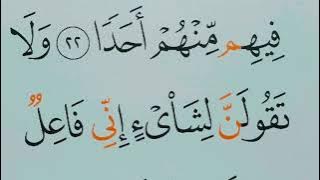 فِيهِم مِّنْهُمْ أَحَدًا ٢٢ وَلَا
تَقُولَنَّ لِشَا۟ىْءٍ إِنِّى فَاعِلٌ